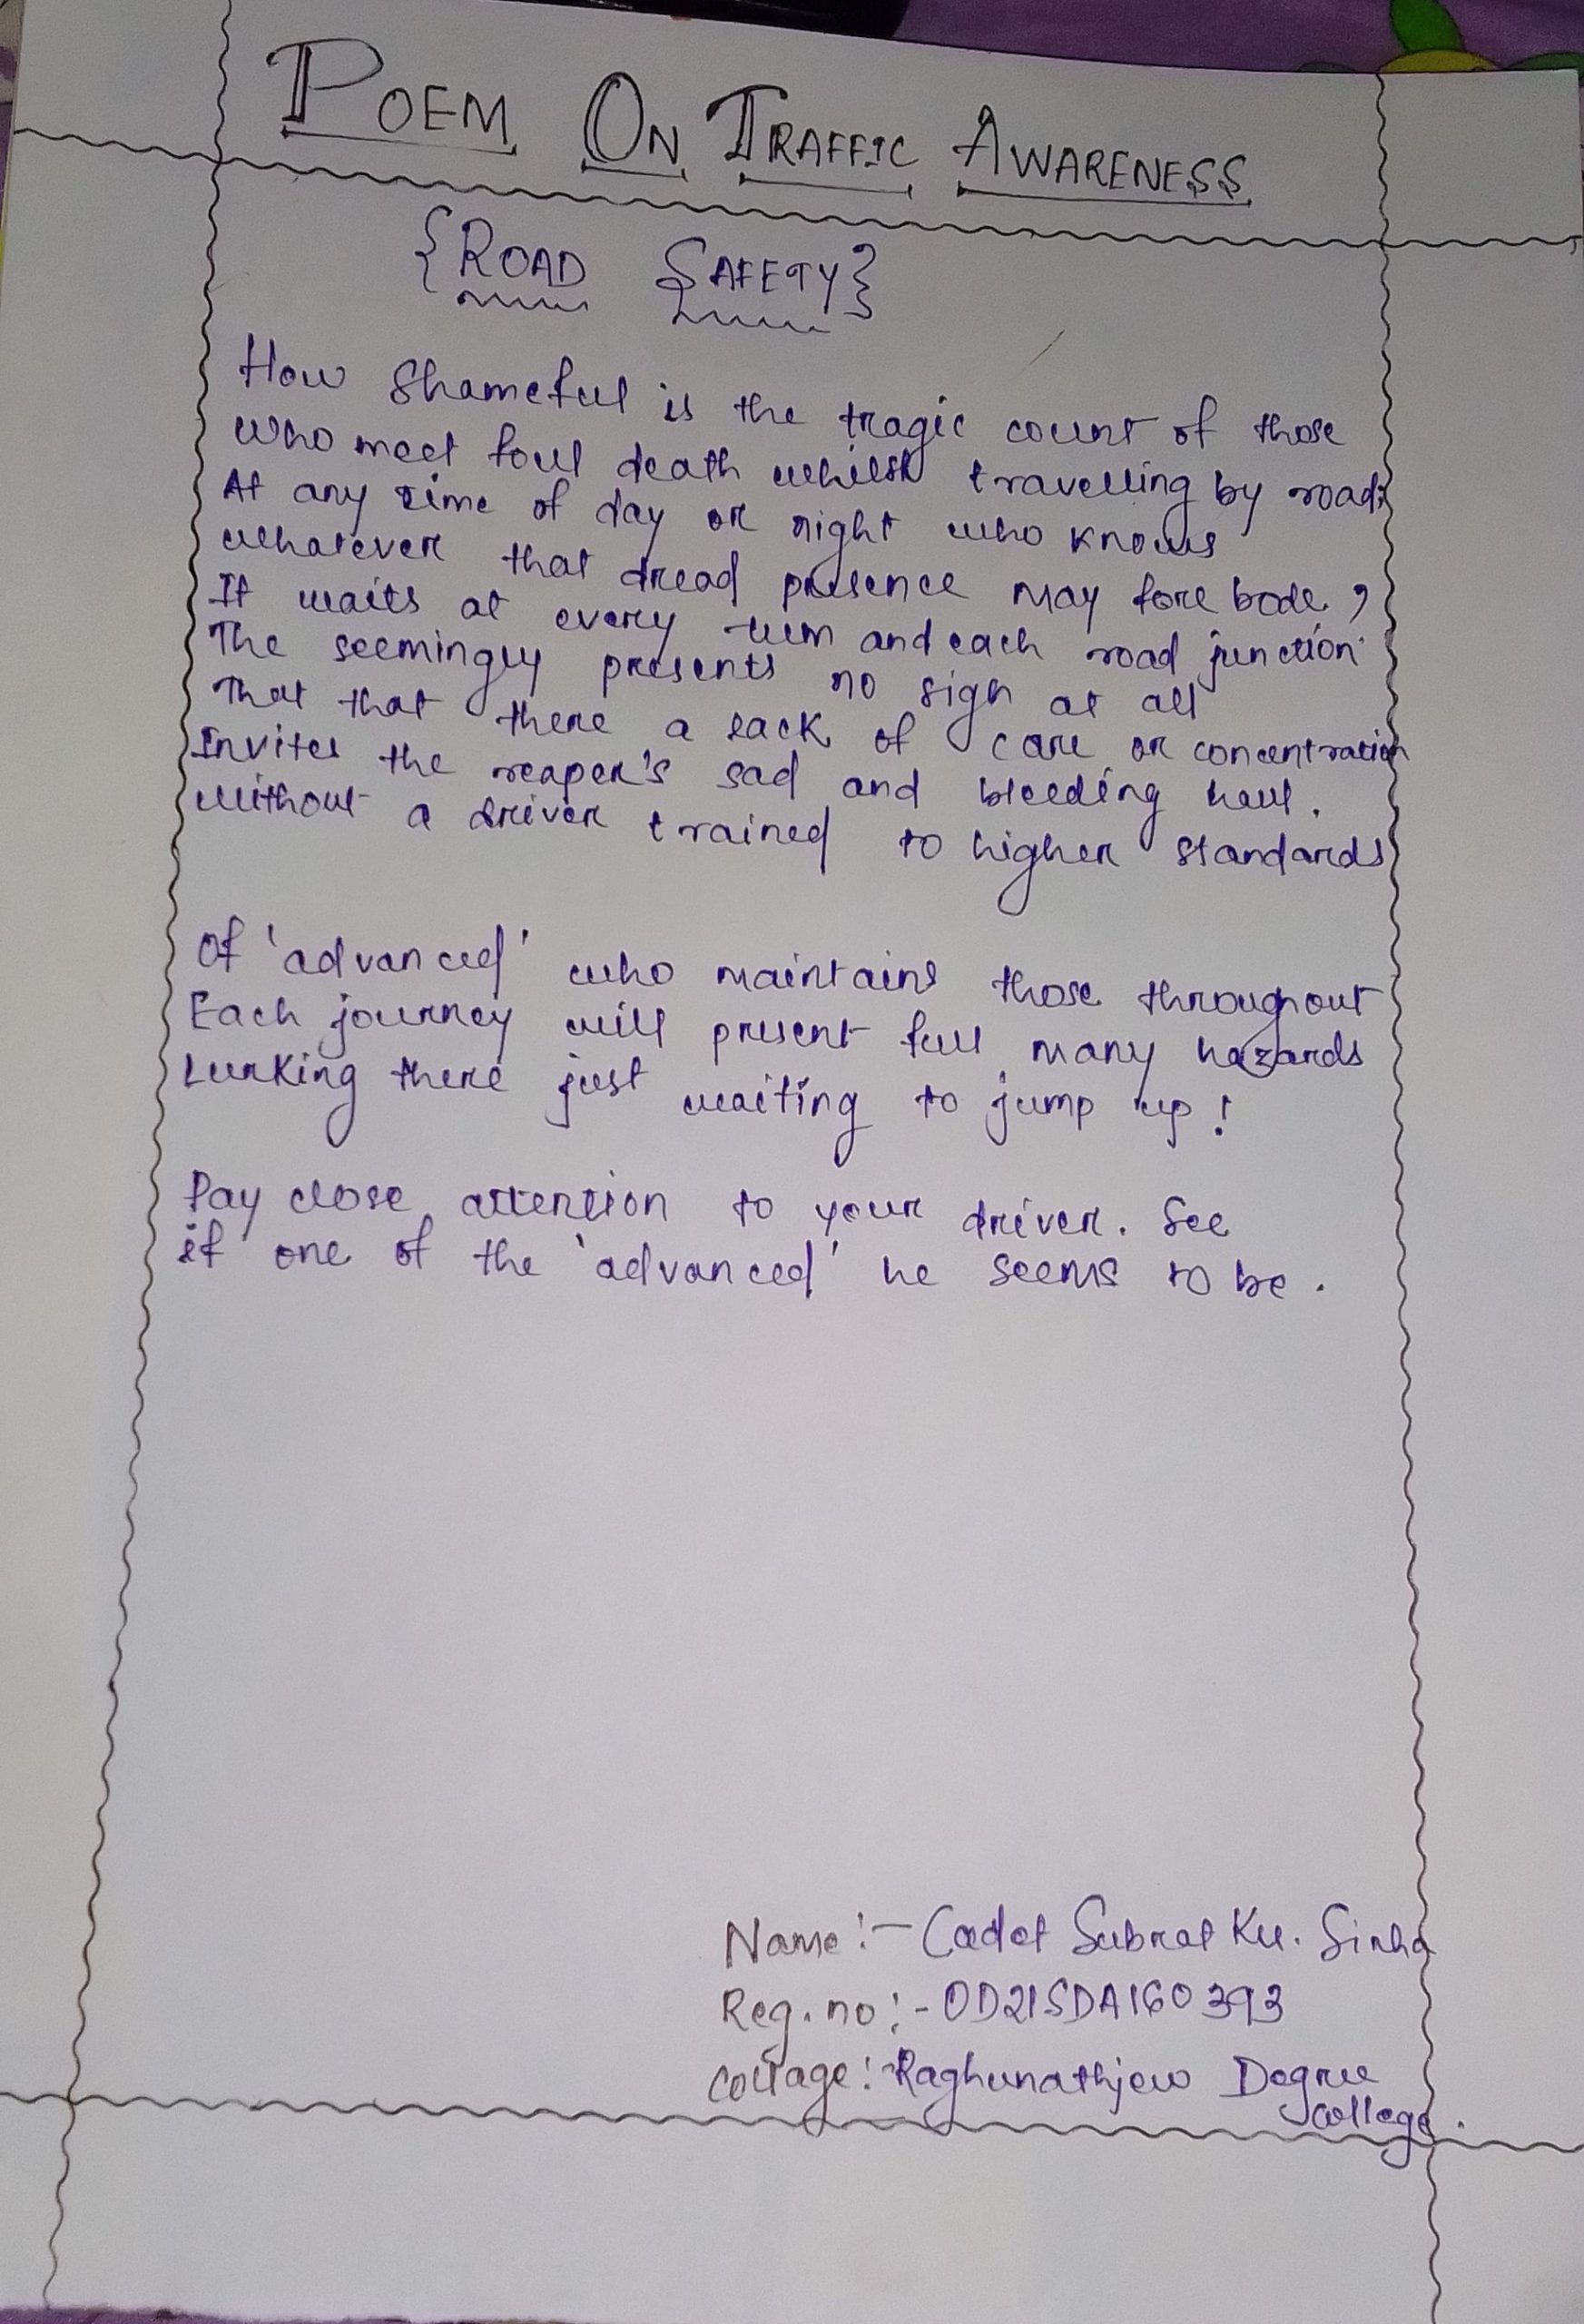 POEM ON TRAFFIC AWARENESS
{ROAD SAFETY}
How Shameful is the tragic count of those
who meet foul death whilst travelling by road;
At any time of day or night who knows
whatever that dread presence may fore bode,
It waits at every turn and each road junction
The seemingly presents no sign at all
That that there a lack of care or concentration
Invites the reaper's sad and bleeding haul.
Without a driver trained to higher standards
Of 'advanced' who maintains those throughout
Each journey will present full many hazards
Lurking there just waiting to jump up!
Pay close attention to your driver. See
if one of the 'advanced' he seems to be.
Name:- Cadet Subrat Ku. Sinha
Reg. no:- OD21SDA160393
Collage:- Raghunathjew Degree
College.